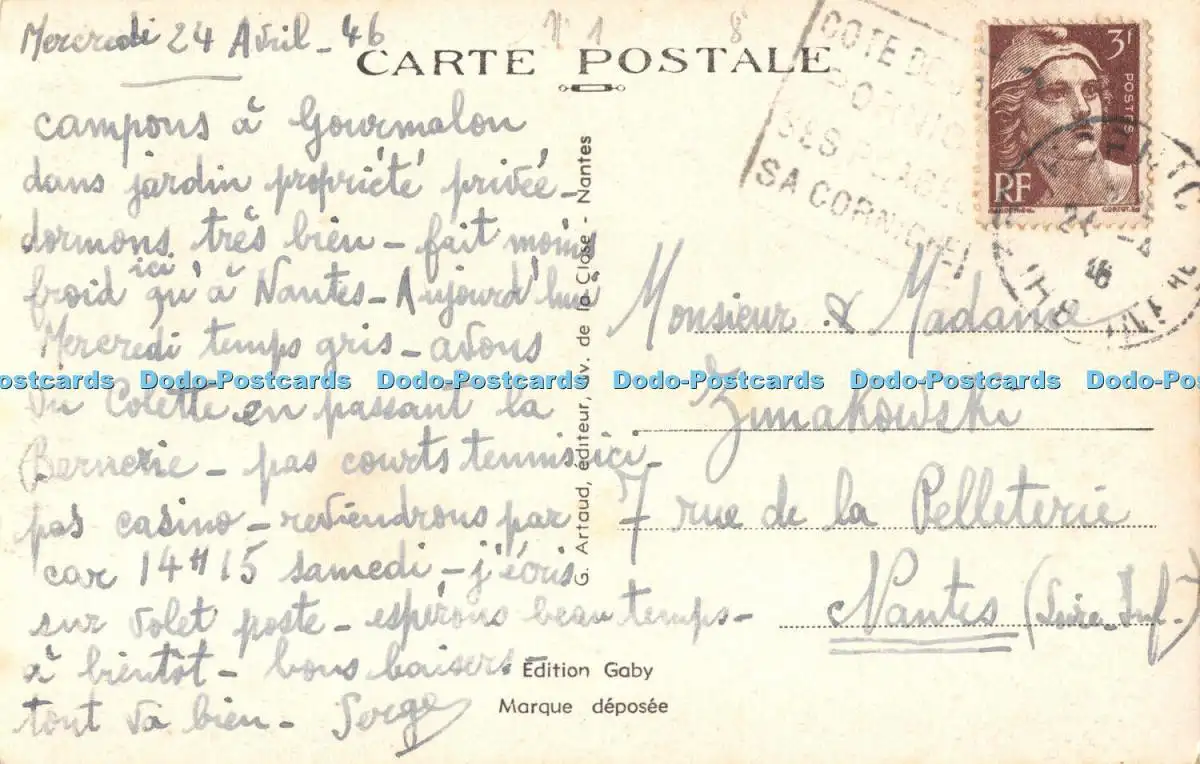 Mercredi 24 Avril - 46
CARTE POSTALE
campons à Gourmalon
dans jardin propriété privée -
dormons très bien - fait moins
froid ici qu'à Nantes - Aujourd'hui
Mercredi temps gris - avons
vu Colette en passant la
Bernerie - pas courts tennis ici
pas casino - reviendrons par
car 14H15 samedi - j'écris
sur volet poste - espérons beau temps -
à bientôt - bons baisers -
tout va bien - Serge
G. Artaud, éditeur, av. de la Close - Nantes
Edition Gaby
Marque déposée
COTE DE
SES PLAGES
SA CORNICHE
3F
POSTES
RF
24 -4
46
Monsieur & Madame
Zimakowski
7 rue de la Pelleterie
Nantes (Loire-Inf.)
Dodo-Postcards Dodo-Postcards Dodo-Postcards Dodo-Postcards Dodo-Postcards